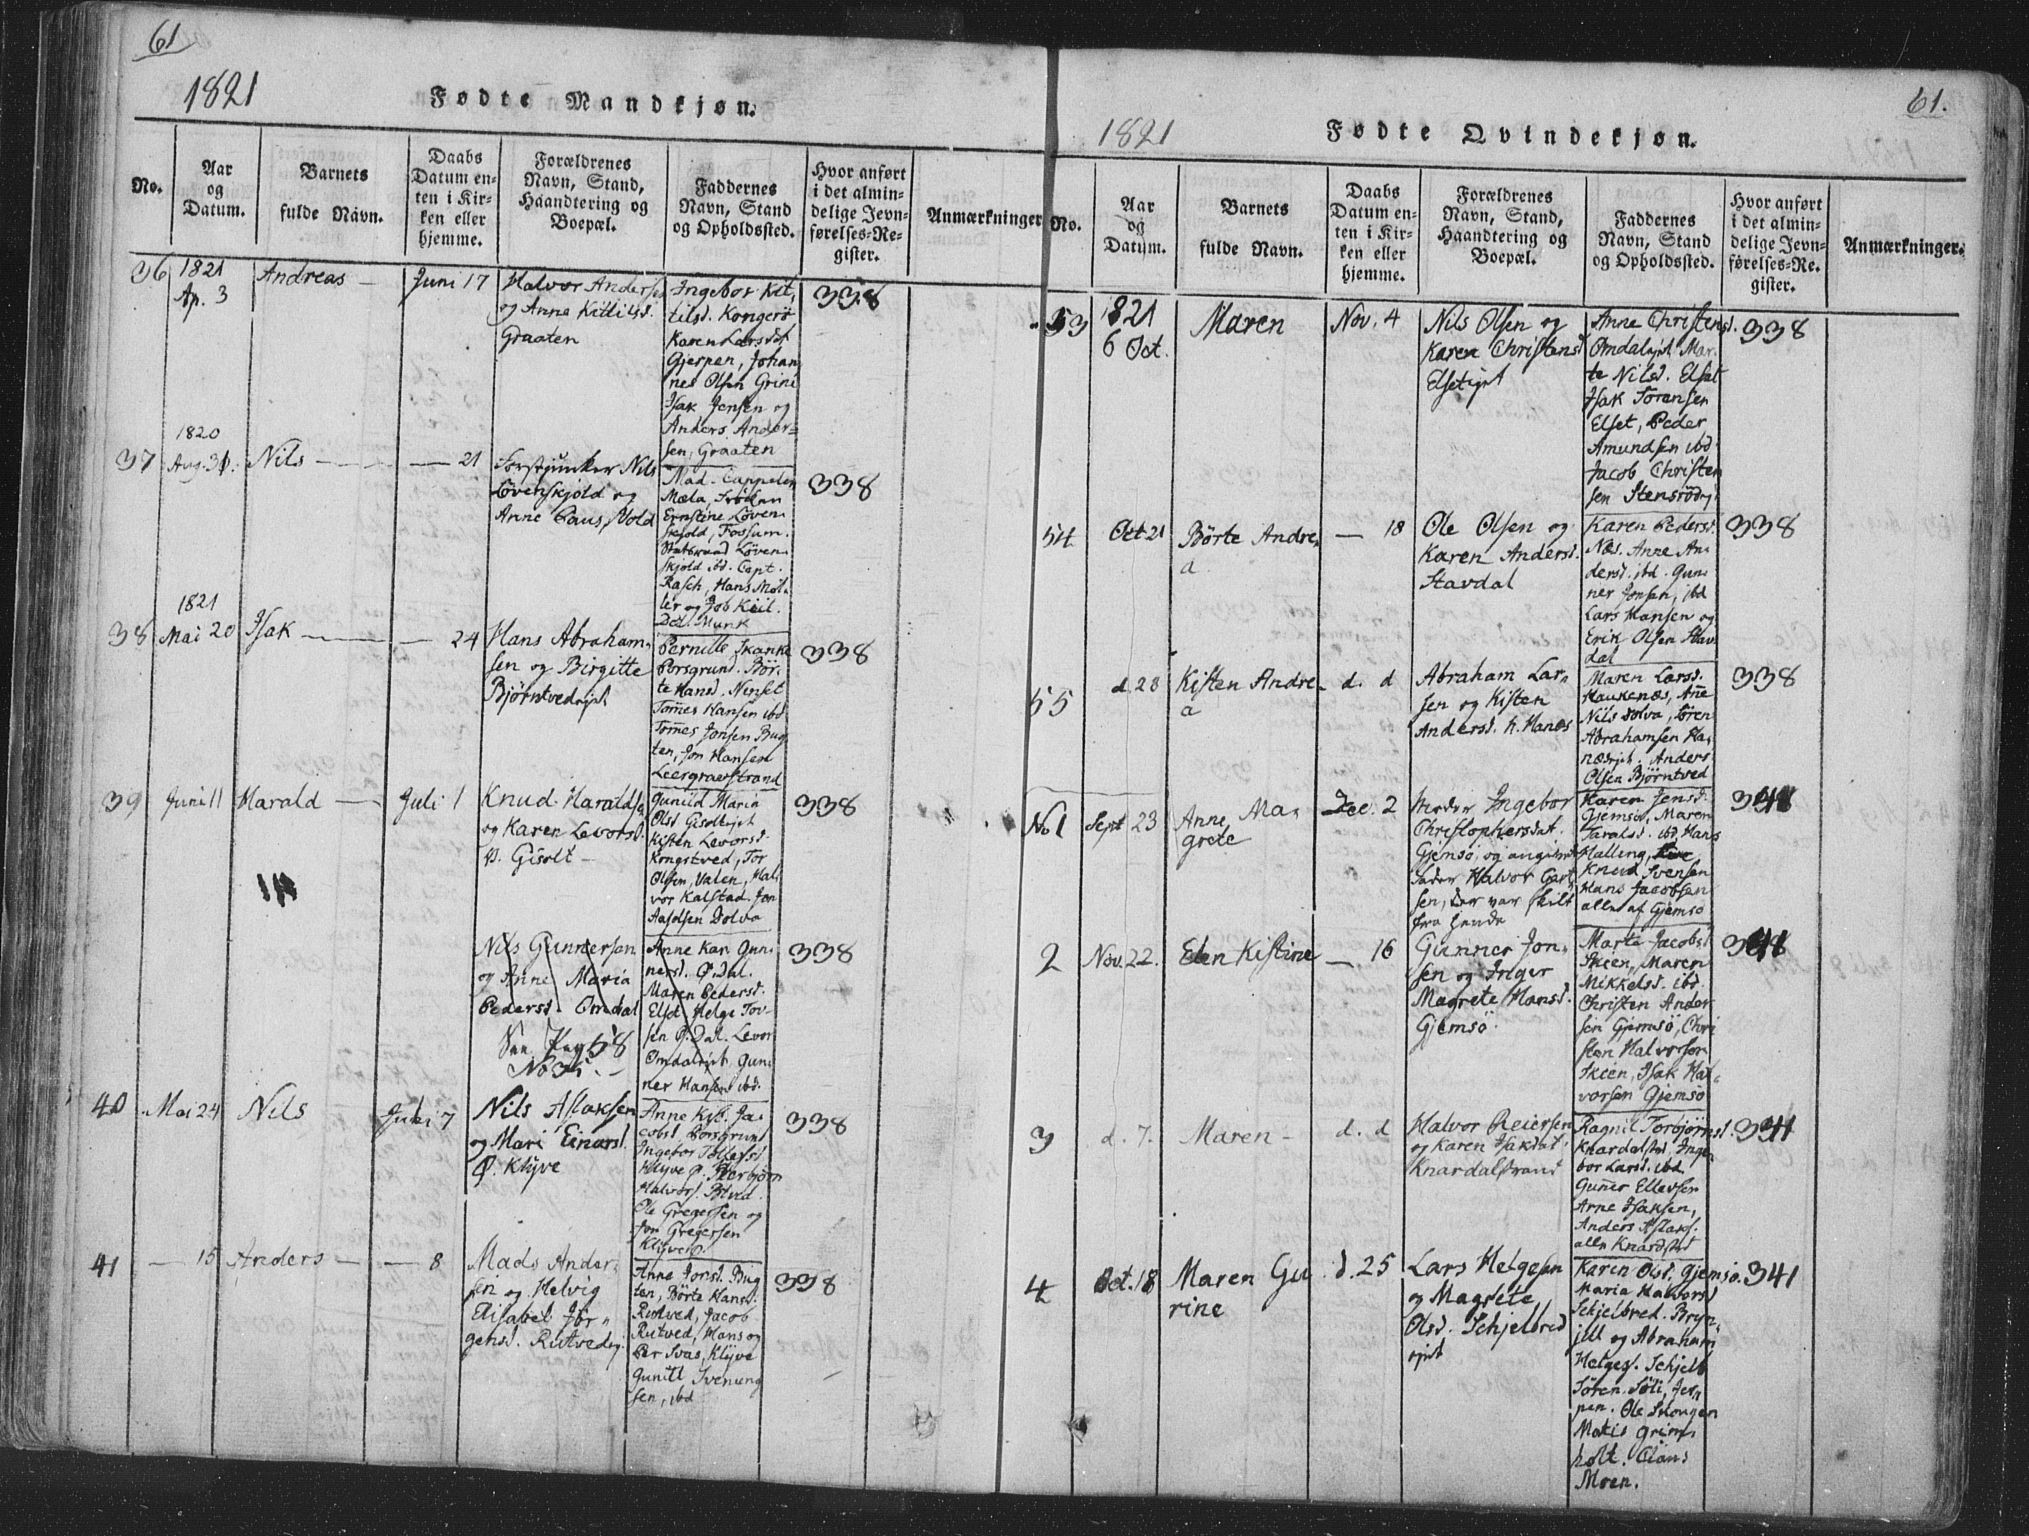 61
1821
Fødte Mandkjøn.
No.
Aar
og
Datum.
Barnets
fulde Navn.
Daabs
Datum en-
ten i Kir-
ken eller
hjemme.
Forældrenes
Navn, Stand,
Haandtering og
Boepæl.
Faddernes
Navn, Stand
og Opholdssted.
Hvor anført
i det almin-
delige Jevn-
førelses-Re-
gister.
Anmærkninger
36
1821
Ap. 3
Andreas
Juni 17
Halvor Anders
og Anne Kittilsd.
Graaten
Ingebor Kit,
tilsd. Kongerø
Karen Larsdt
Gjerpen, Johan
nes Olsen Grini
Isak Jensen og
Anders Ander-
sen, Graaten
338
37
1820
Aug. 31.
Nils
21
Forstjunker Nils
Løvenskjold og
Anne Paus, Vold
Mad. Cappelen
Mæla, Frøken
Ernstine Løven-
skjold, Fossum.
Statsraad Løven-
skjold ibd. Capt.
Rasch, Hans Møl-
ler og Job Kiil.
Dtl. Munk
338
38
1821
Mai 20
Isak
24
Hans Abraham-
sen og Birgitte
Bjørntvedejet
Pernille Skanke
Porsgrund. Bør-
te Hansd. Nenset
Tom̄es Hansen ibd
Tom̄es Jonsen Bug
ten, Jon Hansen
Leergravstrand
338
39
Juni 11
Harald
Juli 1
Knud Haralds
og Karen Levorsd.
Gisolt
Gunild Maria
Olsd Gisoltejet
Kisten Levorsd.
Kongstved, Tor
Olsen, Valen, Hal
vor Kalstad. Jon
Aasolsen Dolva
338
Nils Gunnersen
og Anne Maria
Pedersd. Omdal
See Pag 58
No 35.
Anne Kari Gun-
nersd. Ø. Dal.
Maren Pedersd.
Elset Helge Tov-
sen Ø. Dal. Levor
Omdalejet Gun
ner Hansen ibd.
338
40
Mai 24
Nils
Juli 7
Nils Aslaksen
og Mari Einarsd.
Ø. Klyve
Anne Kib. Ja-
cobsd Porsgrund
Ingebor Tollefsd
Klyve Ø. Torbjørn
Halvors. Btved.
Ole Gregersen og
Jon Gregersen
Klyve Ø.
338
41
15
Anders
8
Mads Ander-
sen og Helvig
Elisabet Jør-
gensd. Rutvedej.
Anne Jonsd. Bug
ten, Børte Hansd.
Rutved, Jacob
Rutved, Hans og
Per Svas, Klyve
Gunill Sveneng
sen, ibd
338
61.
1821
Fødte Qvindekjøn.
No.
Aar
og
Datum.
Barnets
fulde Navn.
Daabs
Datum en-
ten i Kir-
ken eller
hjemme.
Forældrenes
Navn, Stand,
Haandtering og
Boepæl.
Faddernes
Navn, Stand
og Opholdssted.
Hvor anført
i det almin-
delige Jevn-
førelses-Re-
gister.
Anmærkninger.
53
1821
6 Oct.
Maren
Nov. 4
Nils Olsen og
Karen Christensd
Elsetejet
Anne Christensd.
Omdalejet Mar-
te Nilsd. Elset
Isak Sørensen
Elset, Peder
Amundsen ibd
Jacob Christen
sen Stensrødej.
338
54
Oct 21
Børte Andre
a
18
Ole Olsen og
Karen Andersd.
Stavdal
Karen Pedersd.
Næs. Anne An-
dersd. ibd. Gun-
ner Jonsen, ibd
Lars Hansen og
Erik Olsen Stav
dal
338
55
d. 28
Kisten Andre
a
d. d
Abraham Lar-
sen og Kisten
Andersd. h. Hanæs
Maren Larsd.
Haukenæs, An̄e
Nils Dolva, Søren
Abrahamsen Ha-
næsejet. Anders
Olsen Bjørntved
338
No 1
Sept 23
Anne Ma-
grete
Dec. 2
Moder Ingebor
Christophersdat.
Gjemsø, og angivet
Fader Halvor Carl
sen, der var skilt
fra hende
Karen Jensd.
Gjemsø, Maren
Taralsd. ibd, Hans
Halling,
Knud Svensen
Hans Jacobsen
alle af Gjemsø
341
2
Nov. 22.
Elen Kistine
16
Gunner Jon-
sen og Inger
Magrete Hansd.
Gjemsø
Marte Jacobsd
Skien, Maren
Mikkelsd. ibd.
Christen Ander
sen Gjemsø, Chri
sten Halvorsen
Skien, Isak Hal-
vorsen Gjemsø
341
3
d. 7.
Maren
d. d
Halvor Reiersen
og Karen Isaksdat.
Knardalstrand
Ragnil Torbjørnsd.
Knardalstrd, Inge
bor Larsd. ibd
Guñer Ellevsen
Arne Isaksen,
Anders Aslaks.
alle Knardstrd
341
4
Oct. 18
Maren Gu
rine
d. 25
Lars Helgesen
og Magrete
Olsd. Schjelbred
ejet
Karen Olsd. Gjemsø.
Maria Halvorsd
Schjelbred. Bryn-
jill og Abraham
Helges. Schjelb
Søren Søli, Jer-
pen. Ole Skougen
Matis Grim-
holt. Claus
Moen.
341